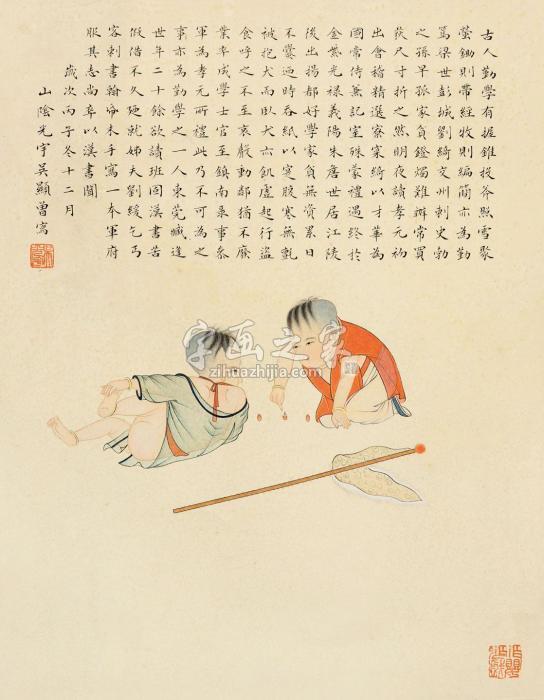 古人勤學有握錐投斧照雪聚
螢鋤則帶經牧則編簡亦為勤
篤梁世彭城劉綺交州刺史勃
之孫早孤家貧燈燭難辦常買
荻尺寸折之然明夜讀孝元初
出會稽精選寮寀綺以才華為
國常侍兼記室殊蒙禮遇終於
金紫光祿義陽朱詹世居江陵
後出揚都好學家貧無資累日
不爨過時吞紙以寔腹寒無氈
被抱犬而臥犬亦飢虛起行盜
食呼之不至哀聲動鄰猶不廢
業卒成學士官至鎮南錄事參
軍為孝元所禮此乃不可為之
事亦為勤學之一人東莞臧逢
世年二十餘欲讀班固漢書苦
假借不久廼就姊夫劉緩乞丐
客刺書翰帋末手寫一本軍府
服其志尚卒以漢書聞
歲次丙子冬十二月
山陰光宇吳顯曾寫
字画之家
zihuazhijia.com